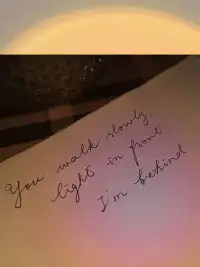 You walk slowly,
light in front,
I'm behind